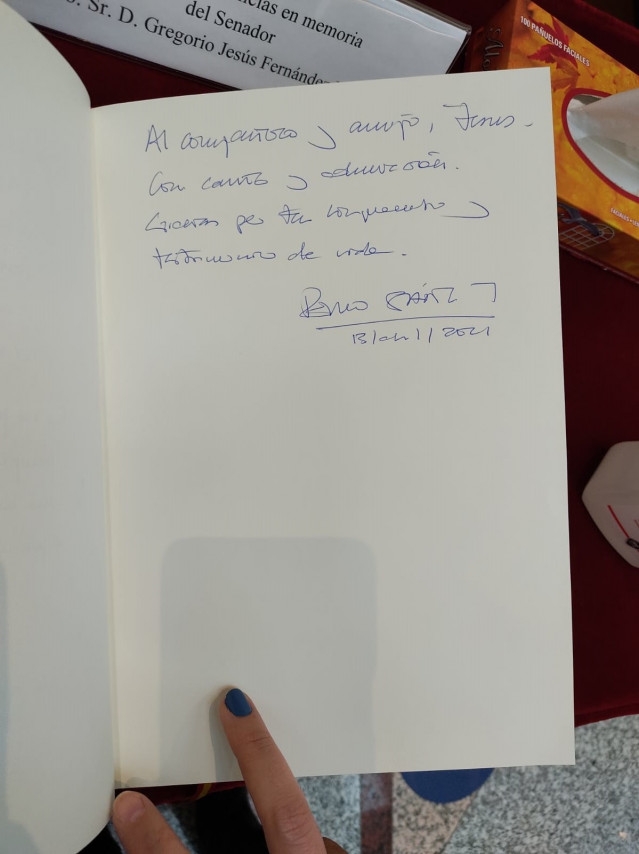 cias en memoria
del Senador
Sr. D. Gregorio Jesús Fernánde
100 PAÑUELOS FACIALES
Al compañero y amigo, Jesús.
Con cariño y admiración.
Gracias por tu compromiso y
testimonio de vida.
2021